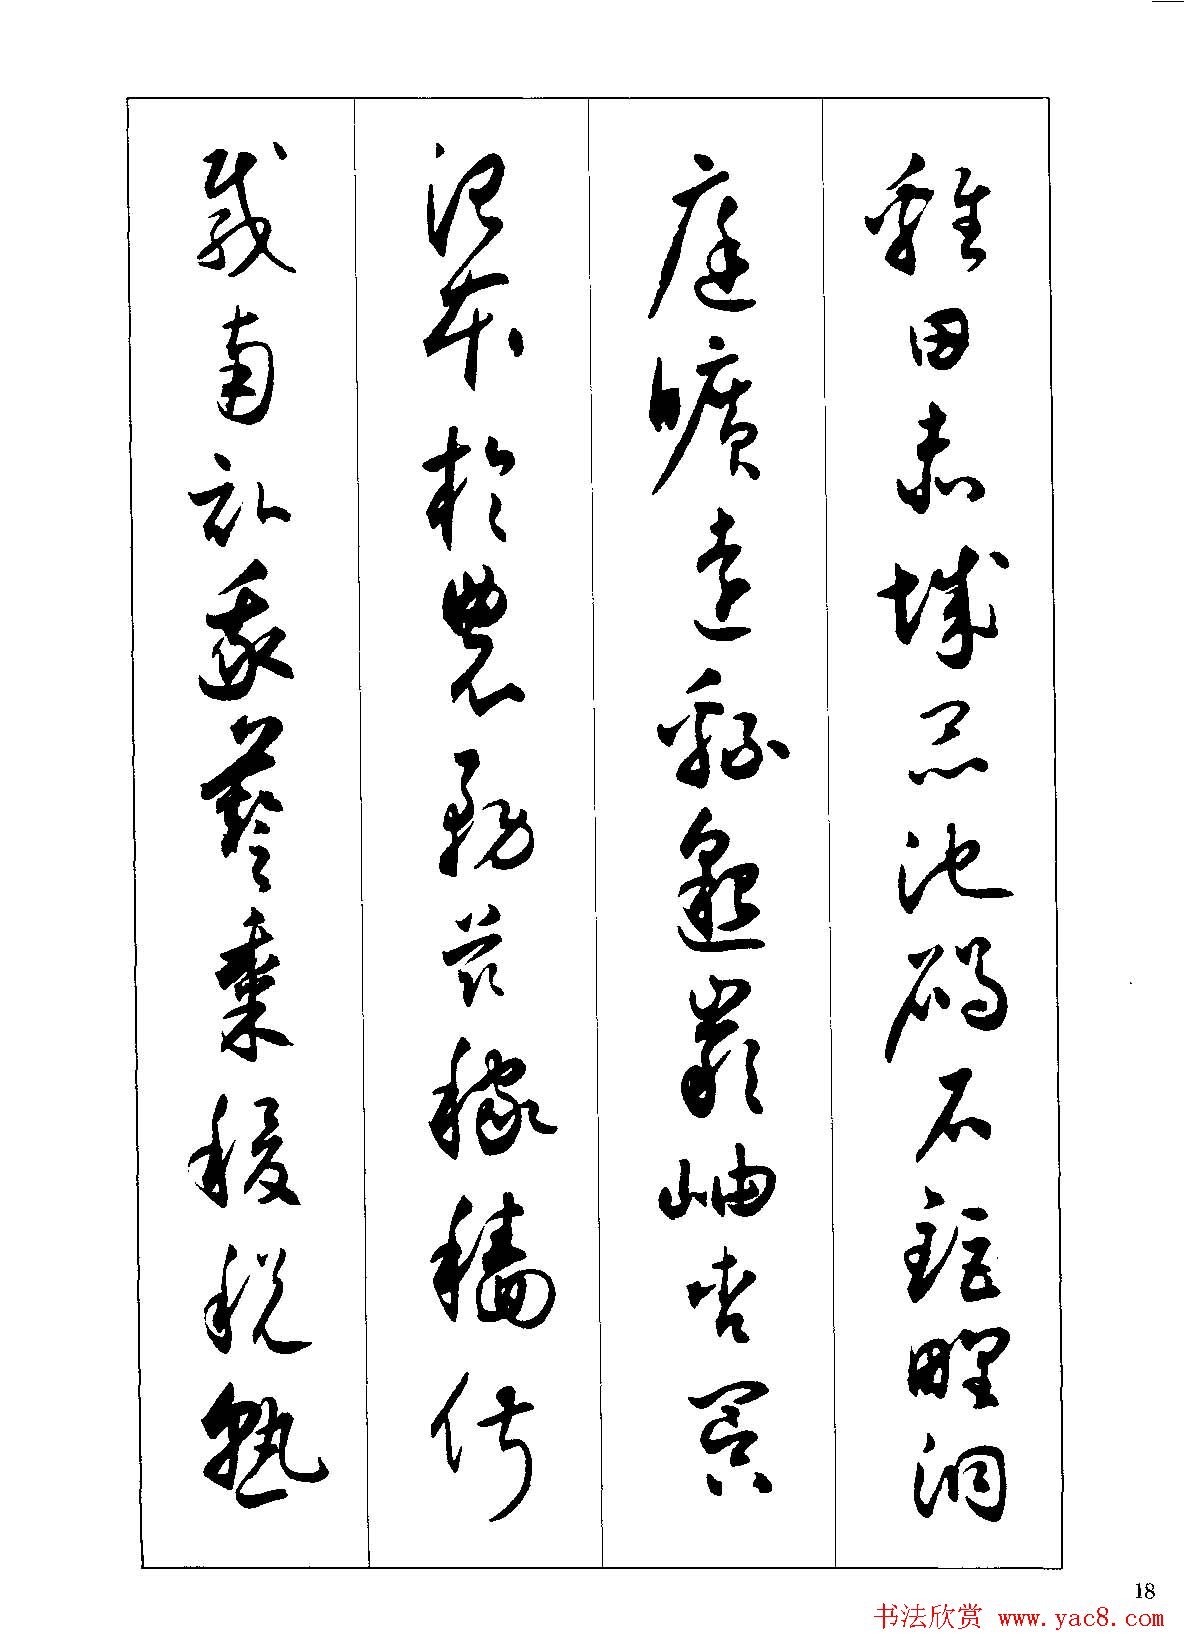 雞田赤城昆池碣石鉅野洞
庭曠遠緜邈巖岫杳冥
治本於農務茲稼穡俶
載南畝我藝黍稷稅熟
18
书法欣赏 www.yac8.com